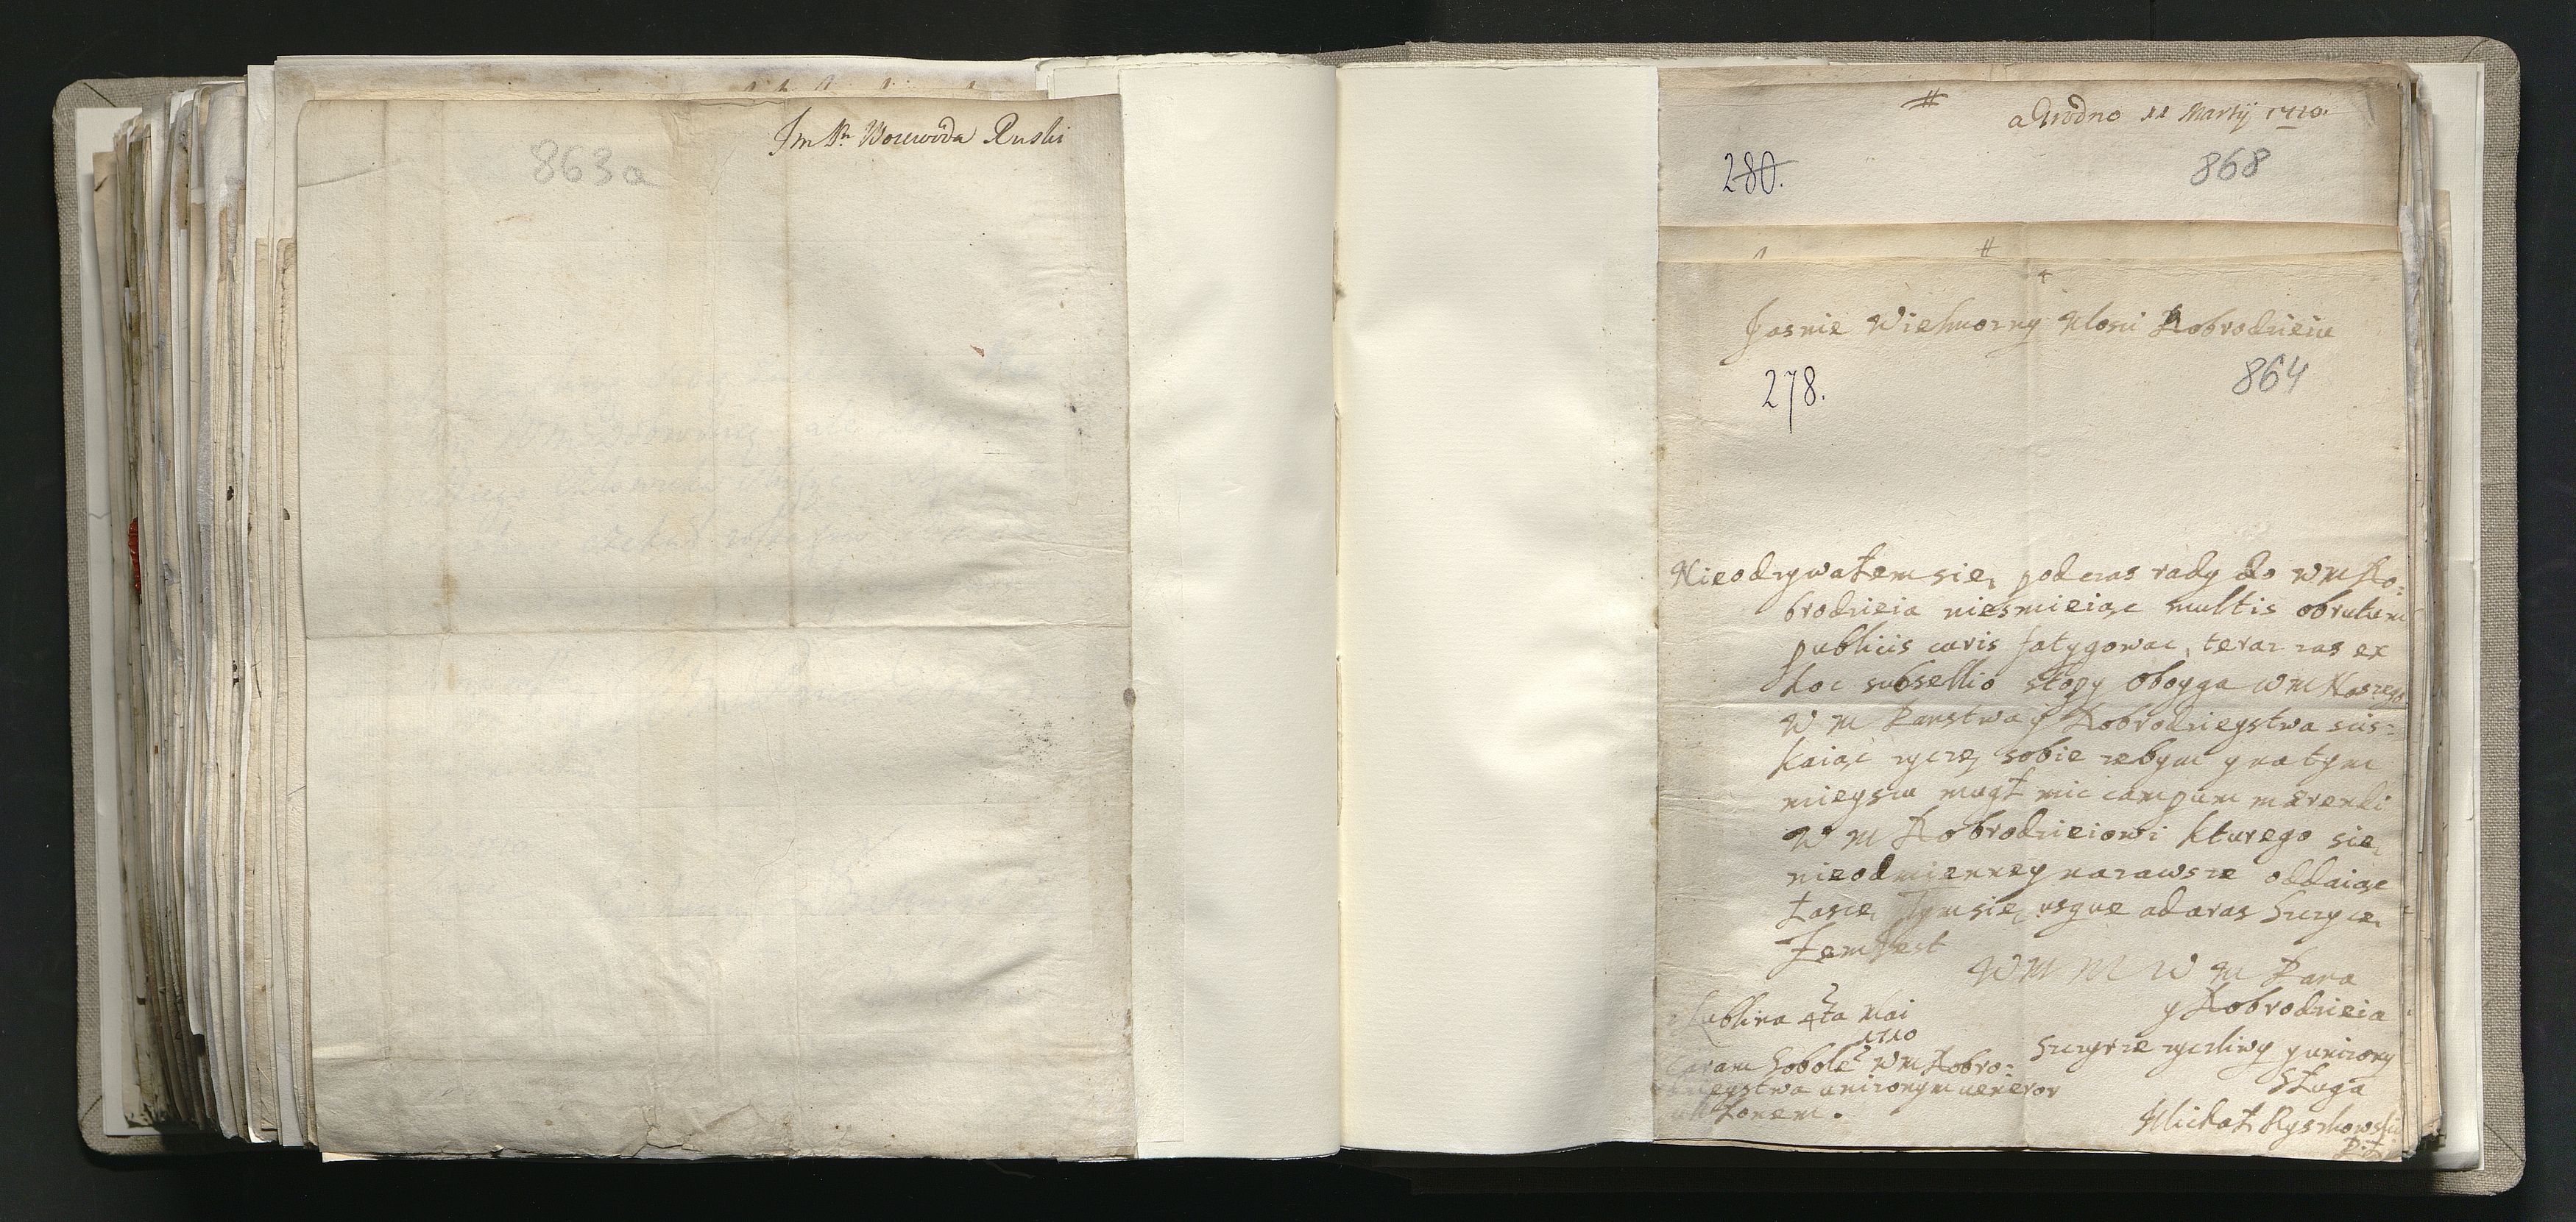 Im Pn Woiewoda Ruski
863a
a Grodno 11 Martij 1710.
280.
868
Jasnie Wielmozny Mosci Dobrodzieiu
278.
864
Nieodzywałem się podczas rady do WM Do:
brodzieia niesmieiąc multis obrutum
publicis curis fatygowac, teraz zas ex
hoc subsellio stopy oboyga WM Naszego
W M Panstwa y Dobrodzieystwa scis:
kaiąc zyczę sobie zebym y na tym
mieyscu mugł mic campum merendi
W M Dobrodzieiowi kturego się
nieodmienney nazawsze oddaiąc
łasce, tym się usque ad aras szczyce
Żem Jest
W M M W M Pana
y Dobrodzieia
szczyrze zyczliwy y unizony
Sługa
Michał Ryszkowski
P: Ł
z Lublina 4ta Mai
1710
Caram Sobolē WM Dobro:
dzieystwa unizonym veneror
ukłonem.